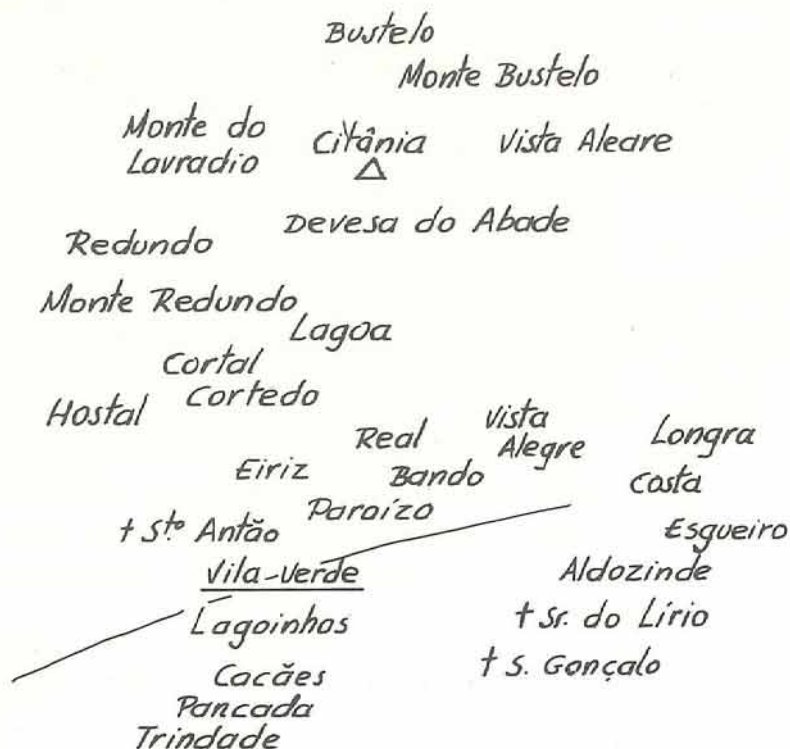 Bustelo
Monte Bustelo
Monte do
Lavradio
Citânia
Vista Aleare
Devesa do Abade
Redundo
Monte Redundo
Lagoa
Cortal
Cortedo
Hostal
Real
Vista
Alegre
Longra
Eiriz
Bando
Costa
Paraízo
† Sto. Antão
Esgueiro
Vila-Verde
Aldozinde
Lagoinhos
† Sr. do Lírio
Cacães
† S. Gonçalo
Pancada
Trindade